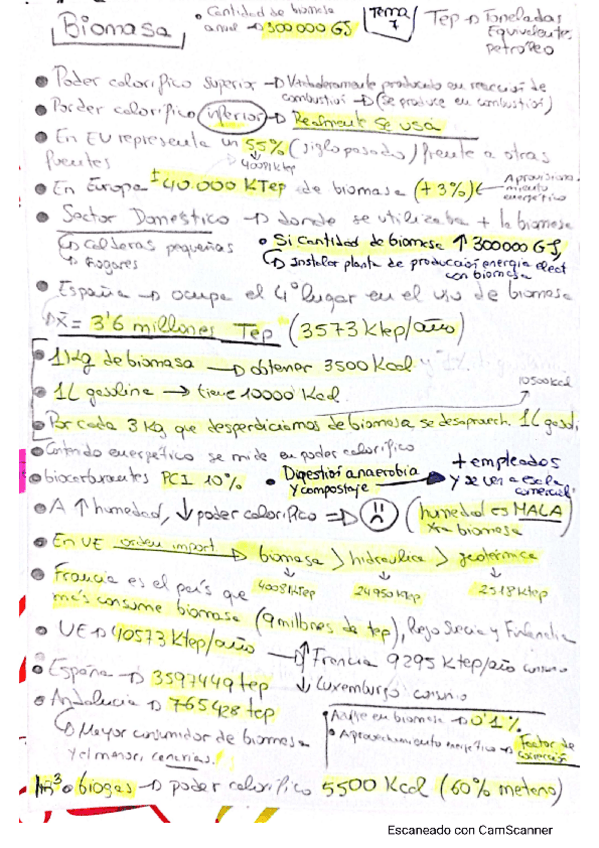 Biomasa
• Cantidad de biomasa anual → 300000 GJ
Tema 7
Tep → Toneladas Equivalentes petróleo
• Poder calorífico superior → Verdaderamente producido en reacción de combustión → (se produce en combustión)
• Porder calorífico inferior → Realmente se usa
• En EU representa un 55% (siglo pasado) frente a otras fuentes
↳ 40081 ktep
• En Europa ± 40.000 KTep de biomasa (+3%) ← Aprovisionamiento energético
• Sector Domestico → donde se utilizaba + la biomasa
↳ calderas pequeñas
↳ Hogares
• Si cantidad de biomasa ↑ 300000 GJ,
↳ Instalar planta de producción energía elect con biomasa
• España → ocupa el 4º lugar en el uso de biomasa
↳ x̄ = 3'6 millones Tep (3573 Ktep/año)
• 1 Kg de biomasa → obtener 3500 Kcal
• 1L gasolina → tiene 10000 Kcal
10500 kcal
• Por cada 3 Kg que desperdiciamos de biomasa se desaproach. 1L gasoli
• Contenido energético se mide en poder calorífico
• biocarburantes PCI 10%
• Digestión anaerobia y compostaje → + empleados y se ven a escala comercial
• A ↑ humedad, ↓ poder calorífico ⇒ ☹ (humedad es MALA
biomasa)
• En UE orden import. → biomasa > hidraulica > geotérmica
40081 Ktep 24950 ktep 2518 Ktep
• Francia es el país que más consume biomasa (9 millones de tep), Rejo Suecia y Finlandia
• UE → 10573 Ktep/año → ↑ Francia 9295 Ktep/año consumo
↓ Luxemburgo consumo
• España → 3597449 tep
• Andalucia → 765428 tep
↳ Mayor consumidor de biomasa y el menor: canarias.
en biomasa → 0'1%
• Aprovechamiento energético → Factor de conversión
1m³ • biogas → poder calorífico 5500 Kcal (60% metano)
Escaneado con CamScanner